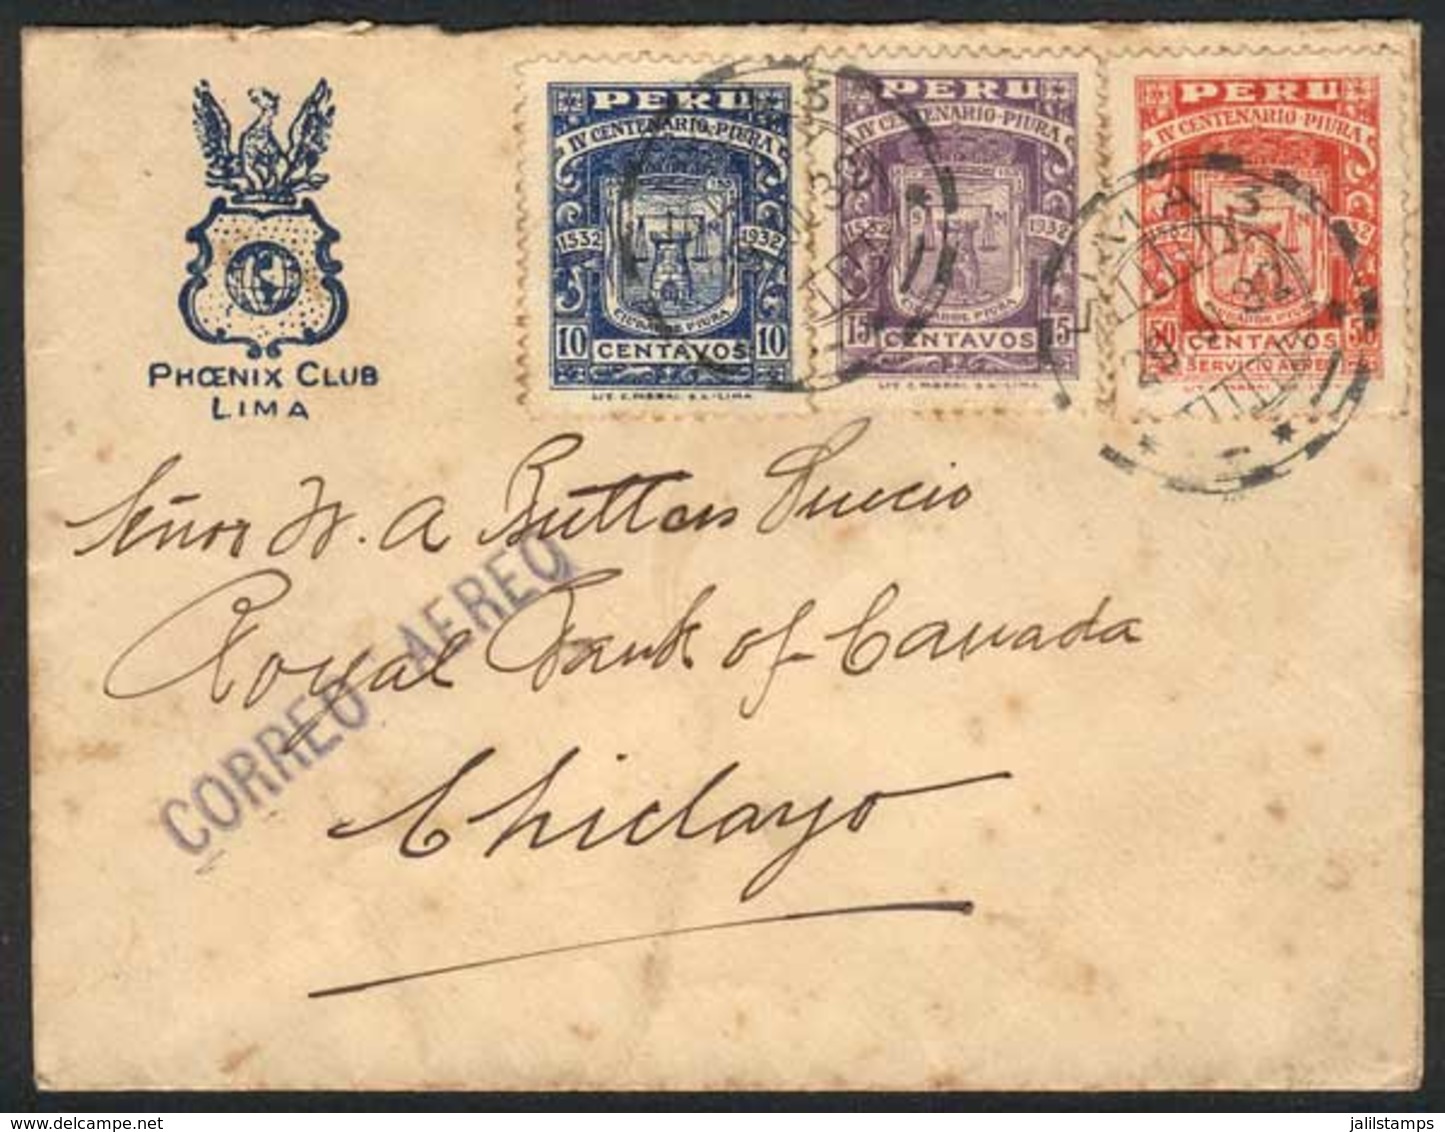 PHŒNIX CLUB
LIMA
PERU
IV CENTENARIO-PIURA
1532 1932
CIUDAD DE PIURA
10 CENTAVOS 10
PERU
IV CENTENARIO-PIURA
1532 1932
CIUDAD DE PIURA
15 CENTAVOS 15
PERU
IV CENTENARIO-PIURA
1532 1932
CIUDAD DE PIURA
50 CENTAVOS 50
SERVICIO AEREO
LIMA 3
Señor W. A Butters
Royal Bank of Canada
Chiclayo
CORREO AEREO
jalilstamps